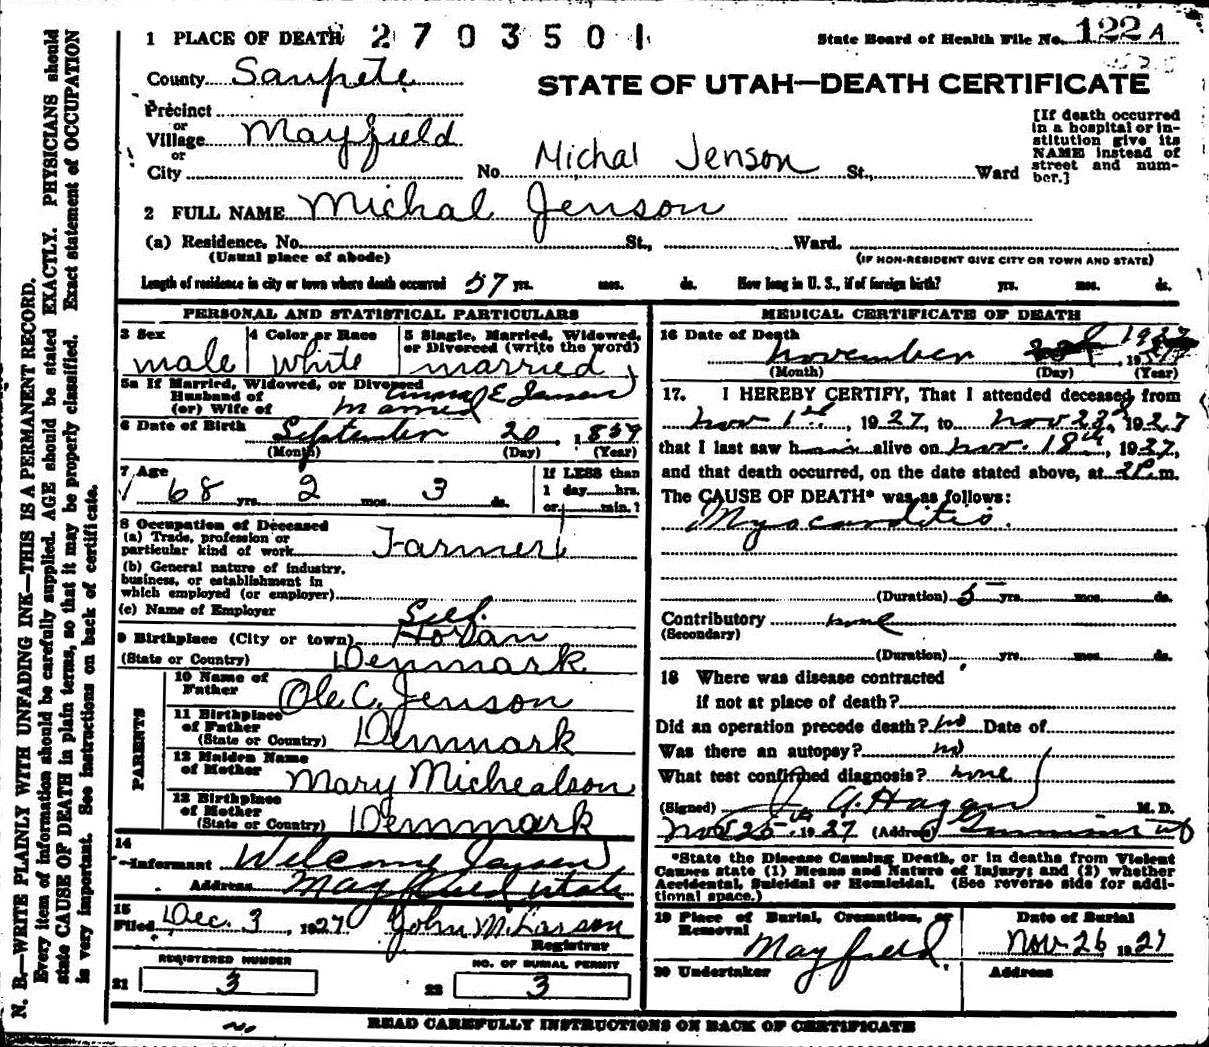 1 PLACE OF DEATH 2703501
State Board of Health File No. 122 A
County Sanpete
STATE OF UTAH—DEATH CERTIFICATE
Precinct
or
Village Mayfield
or
City
No. Michal Jenson St., Ward
[If death occurred
in a hospital or in-
stitution give its
NAME instead of
street and num-
ber.]
2 FULL NAME Michal Jenson
(a) Residence. No. St., Ward.
(Usual place of abode)
(IF NON-RESIDENT GIVE CITY OR TOWN AND STATE)
Length of residence in city or town where death occurred 57 yrs. mos. ds. How long in U. S., if of foreign birth? yrs. mos. ds.
PERSONAL AND STATISTICAL PARTICULARS
3 Sex
male
4 Color or Race
White
5 Single, Married, Widowed,
or Divorced (write the word)
married
5a If Married, Widowed, or Divorced
Husband of E Jensen
(or) Wife of married
6 Date of Birth September 20, 1859
(Month) (Day) (Year)
7 Age
68 yrs. 2 mos. 3 ds.
If LESS than
1 day hrs.
or min.?
8 Occupation of Deceased
(a) Trade, profession or
particular kind of work Farmer
(b) General nature of industry,
business, or establishment in
which employed (or employer)
(c) Name of Employer Self.
9 Birthplace (City or town)
(State or Country) Denmark
PARENTS
10 Name of
Father Ole C. Jenson
11 Birthplace
of Father
(State or Country) Denmark
12 Maiden Name
of Mother Mary Michealson
13 Birthplace
of Mother
(State or Country) Denmark
14
Informant Welcome Jensen
Address Mayfield Utah
15
Filed Dec. 3, 1927 John M. Larson
Registrar
REGISTERED NUMBER
21 3
NO. OF BURIAL PERMIT
22 3
MEDICAL CERTIFICATE OF DEATH
16 Date of Death
November 1927
(Month) (Day) (Year)
17. I HEREBY CERTIFY, That I attended deceased from
Nov 1st, 1927, to Nov 23d, 1927
that I last saw him alive on Nov. 18th, 1927,
and that death occurred, on the date stated above, at 2P.m.
The CAUSE OF DEATH* was as follows:
Myocarditis.
(Duration) 5 yrs. mos. ds.
Contributory none
(Secondary)
(Duration) yrs. mos. ds.
18 Where was disease contracted
if not at place of death?
Did an operation precede death? no Date of
Was there an autopsy? no
What test confirmed diagnosis? none
(Signed) J. A. Hagan M. D.
Nov 25th, 1927 (Address) Gunnison Ut
*State the Disease Causing Death, or in deaths from Violent
Causes state (1) Means and Nature of Injury; and (2) whether
Accidental, Suicidal or Homicidal. (See reverse side for addi-
tional space.)
19 Place of Burial, Cremation, or
Removal
Mayfield.
Date of Burial
Nov. 26 1927
20 Undertaker
Address
READ CAREFULLY INSTRUCTIONS ON BACK OF CERTIFICATE
N. B.—WRITE PLAINLY WITH UNFADING INK—THIS IS A PERMANENT RECORD.
Every item of information should be carefully supplied. AGE should be stated EXACTLY. PHYSICIANS should
state CAUSE OF DEATH in plain terms, so that it may be properly classified. Exact statement of OCCUPATION
is very important. See instructions on back of certificate.